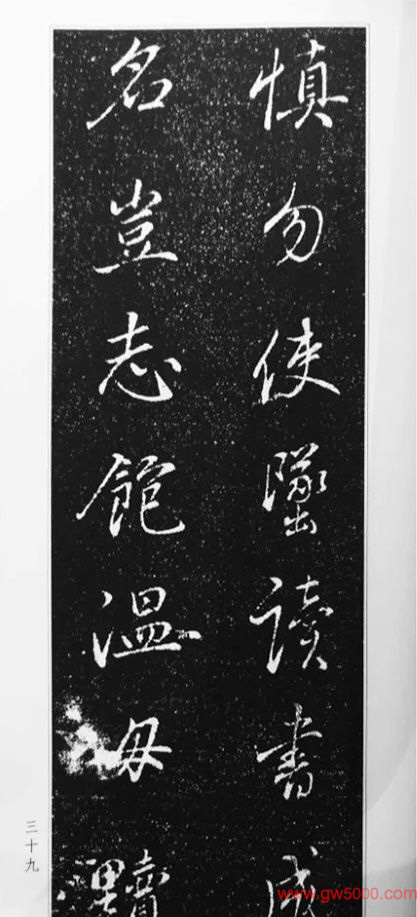 慎勿使墜讀書成
名豈志飽溫毋黷
三十九
www.gw5000.com